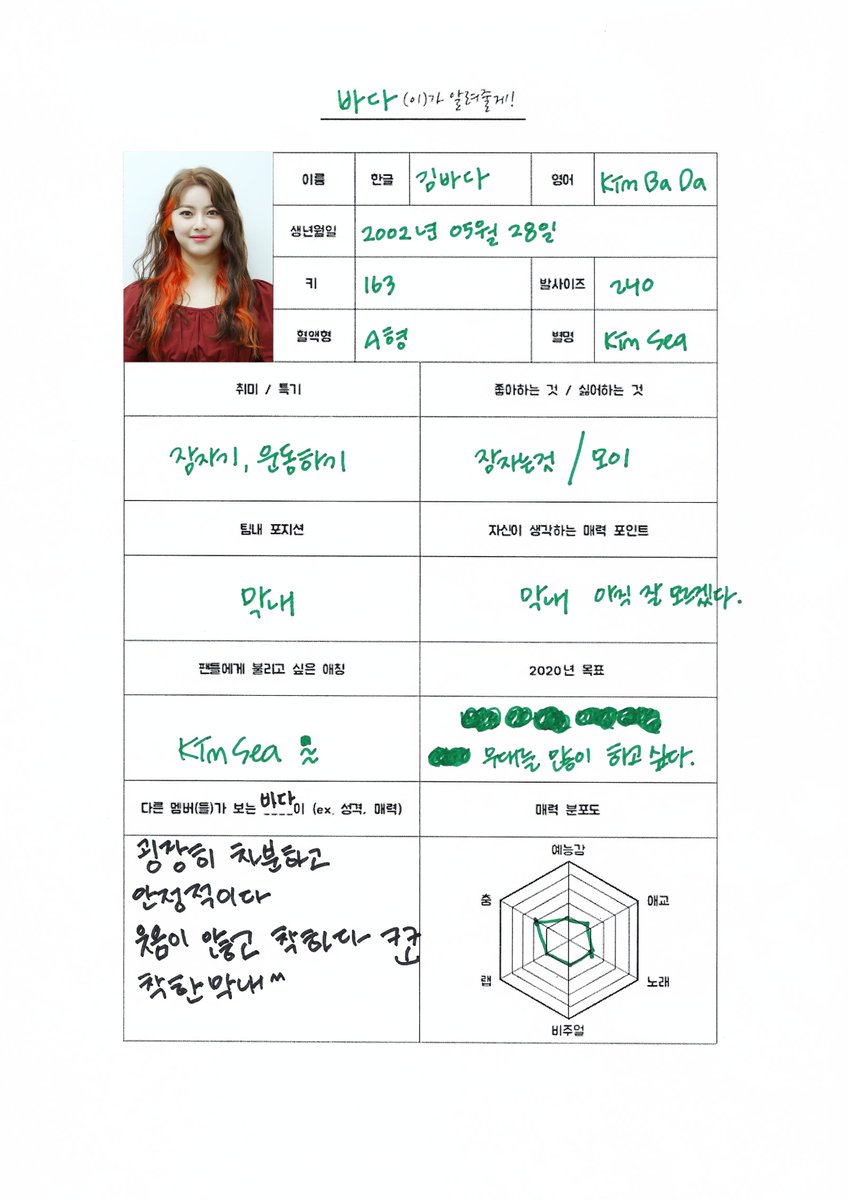 바다 (이)가 알려줄게!
이름 한글 김바다 영어 Kim Ba Da
생년월일 2002년 05월 28일
키 163 발사이즈 240
혈액형 A형 별명 Kim Sea
취미 / 특기 좋아하는 것 / 싫어하는 것
잠자기, 운동하기 잠자는것 / 오이
팀내 포지션 자신이 생각하는 매력 포인트
막내 막내 아직 잘 모르겠다.
팬들에게 불리고 싶은 애칭 2020년 목표
Kim Sea
무대를 많이 하고 싶다.
다른 멤버(들)가 보는 바다이 (ex. 성격, 매력) 매력 분포도
굉장히 차분하고
안정적이다
웃음이 많고 착하다
착한막내^^
예능감
춤 애교
랩 노래
비주얼